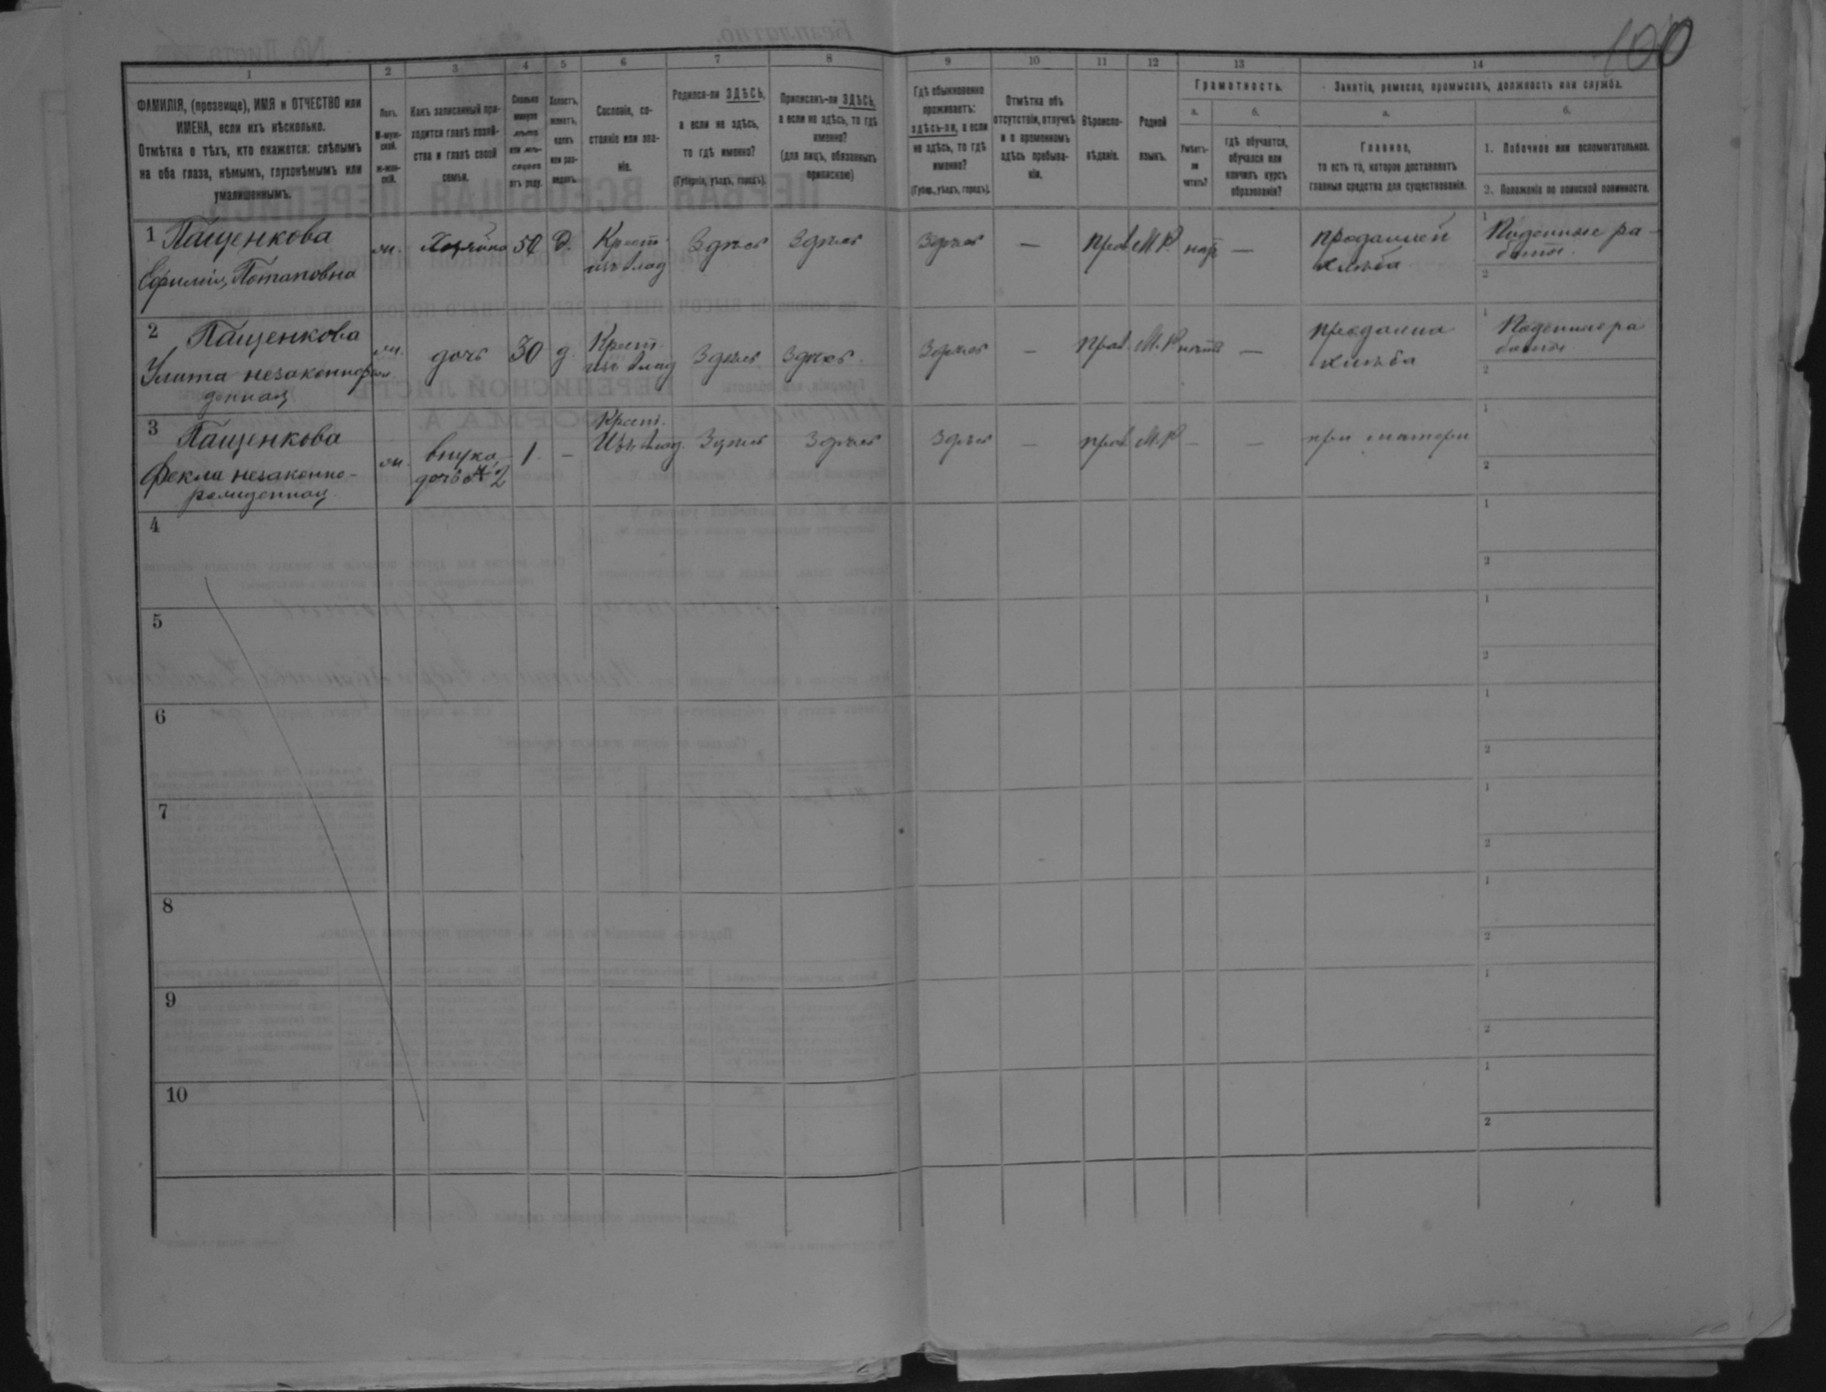 100
1 2 3 4 5 6 7 8 9 10 11 12 13 14
ФАМИЛІЯ, (прозвище), ИМЯ и ОТЧЕСТВО или
ИМЕНА, если ихъ нѣсколько.
Отмѣтка о тѣхъ, кто окажется: слѣпымъ
на оба глаза, нѣмымъ, глухонѣмымъ или
умалишоннымъ.
Полъ.
М-муж-
ской.
ж-жен-
скій.
Какъ записанный при-
ходится главѣ хозяй-
ства и главѣ своей
семьи.
Сколько
минуло
лѣтъ
или мѣ-
сяцевъ
отъ роду.
Холостъ,
женатъ,
вдовъ
или раз-
веденъ.
Сословіе, со-
стояніе или зва-
ніе.
Родился-ли ЗДѢСЬ,
а если не здѣсь,
то гдѣ именно?
(Губернія, уѣздъ, городъ).
Приписанъ-ли ЗДѢСЬ,
а если не здѣсь, то гдѣ
именно?
(для лицъ, обязанныхъ
припискою)
Гдѣ обыкновенно
проживаетъ:
здѣсь-ли, а если
не здѣсь, то гдѣ
именно?
(Губер., уѣздъ, городъ).
Отмѣтка объ
отсутствіи, отлучкѣ
и о временномъ
здѣсь пребыва-
ніи.
Вѣроиспо-
вѣданіе.
Родной
языкъ.
Грамотность.
а.
Умѣетъ-
ли
читать?
б.
гдѣ обучается,
обучался или
кончилъ курсъ
образованія?
Занятіе, ремесло, промыселъ, должность или служба.
а.
Главное,
то есть то, которое доставляетъ
главныя средства для существованія.
б.
1. Побочное или вспомогательное.
2. Положеніе по воинской повинности.
1 Пащенкова
Ефимія, Потаповна
ж.
Хозяйка
50
д.
Крест.
изъ влад
Здѣсь
Здѣсь
Здѣсь
—
Прав.
М.Р.
—
продажей
хлѣба
1 Поденные ра-
боты.
2
2 Пащенкова
Улита незаконнорож
денная
ж.
дочь
30
д.
Крест.
изъ влад
Здѣсь
Здѣсь
Здѣсь
—
Прав.
М.Р.
—
продажа
хлѣба
1 Поденные ра
боты
2
3 Пащенкова
Фекла незаконно-
рожденная
ж.
внука
дочь № 2
1
—
Крест.
Изъ влад.
Здѣсь
Здѣсь
Здѣсь
—
прав.
М.Р
—
—
при матери
1
2
4
1
2
5
1
2
6
1
2
7
1
2
8
1
2
9
1
2
10
1
2